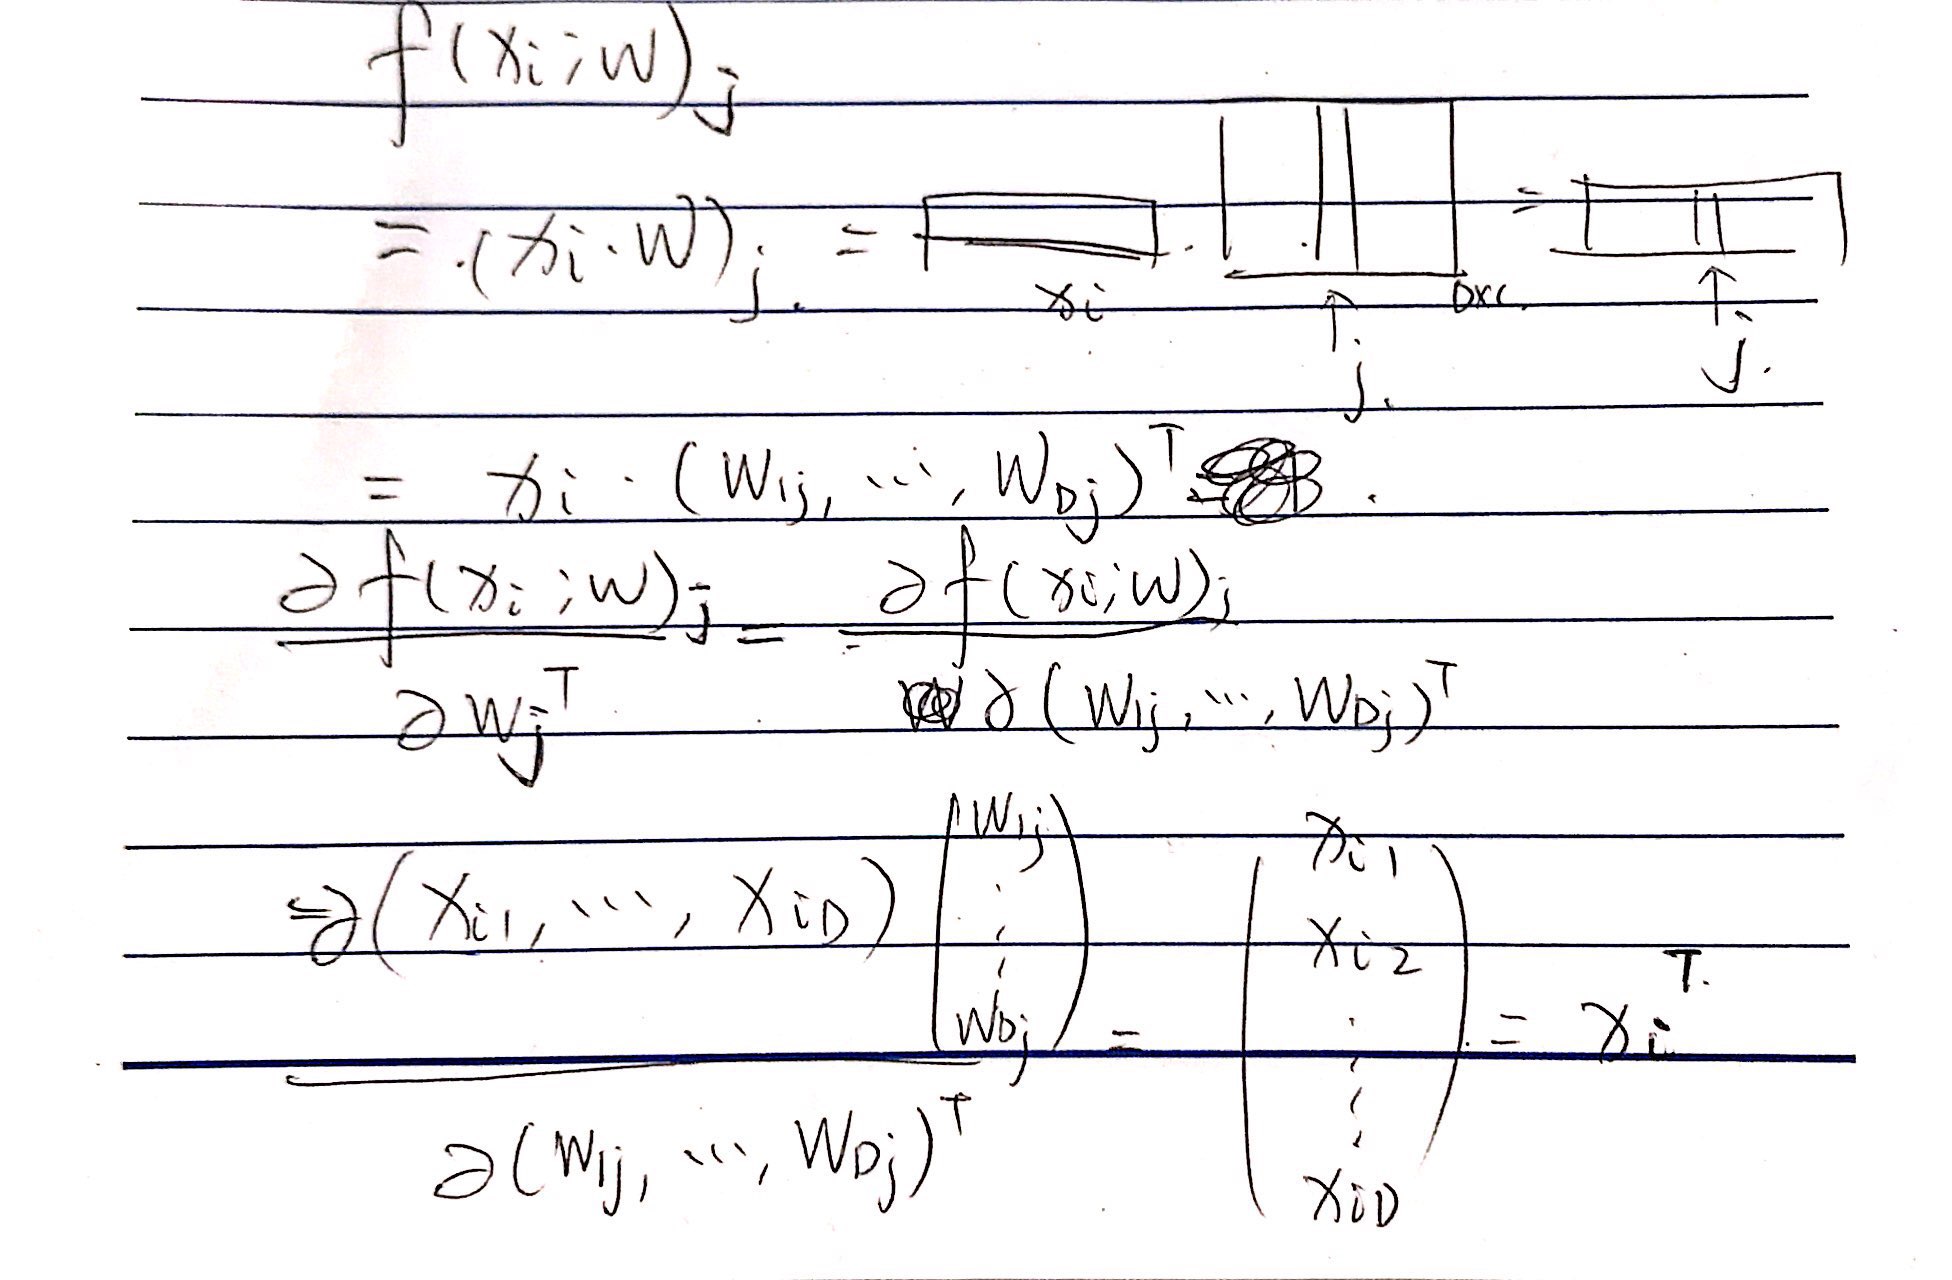 f(xi;W)j
= (xi·W)j = xi · DxC = 
j. j.
= xi · (W1j, ..., WDj)^T
∂f(xi;W)j / ∂Wj^T = ∂f(xi;W)j / ∂(W1j, ..., WDj)^T
= ∂(Xi1, ..., XiD) (W1j ... WDj) / ∂(W1j, ..., WDj)^T = (xi1 xi2 ... xiD) = xi^T.